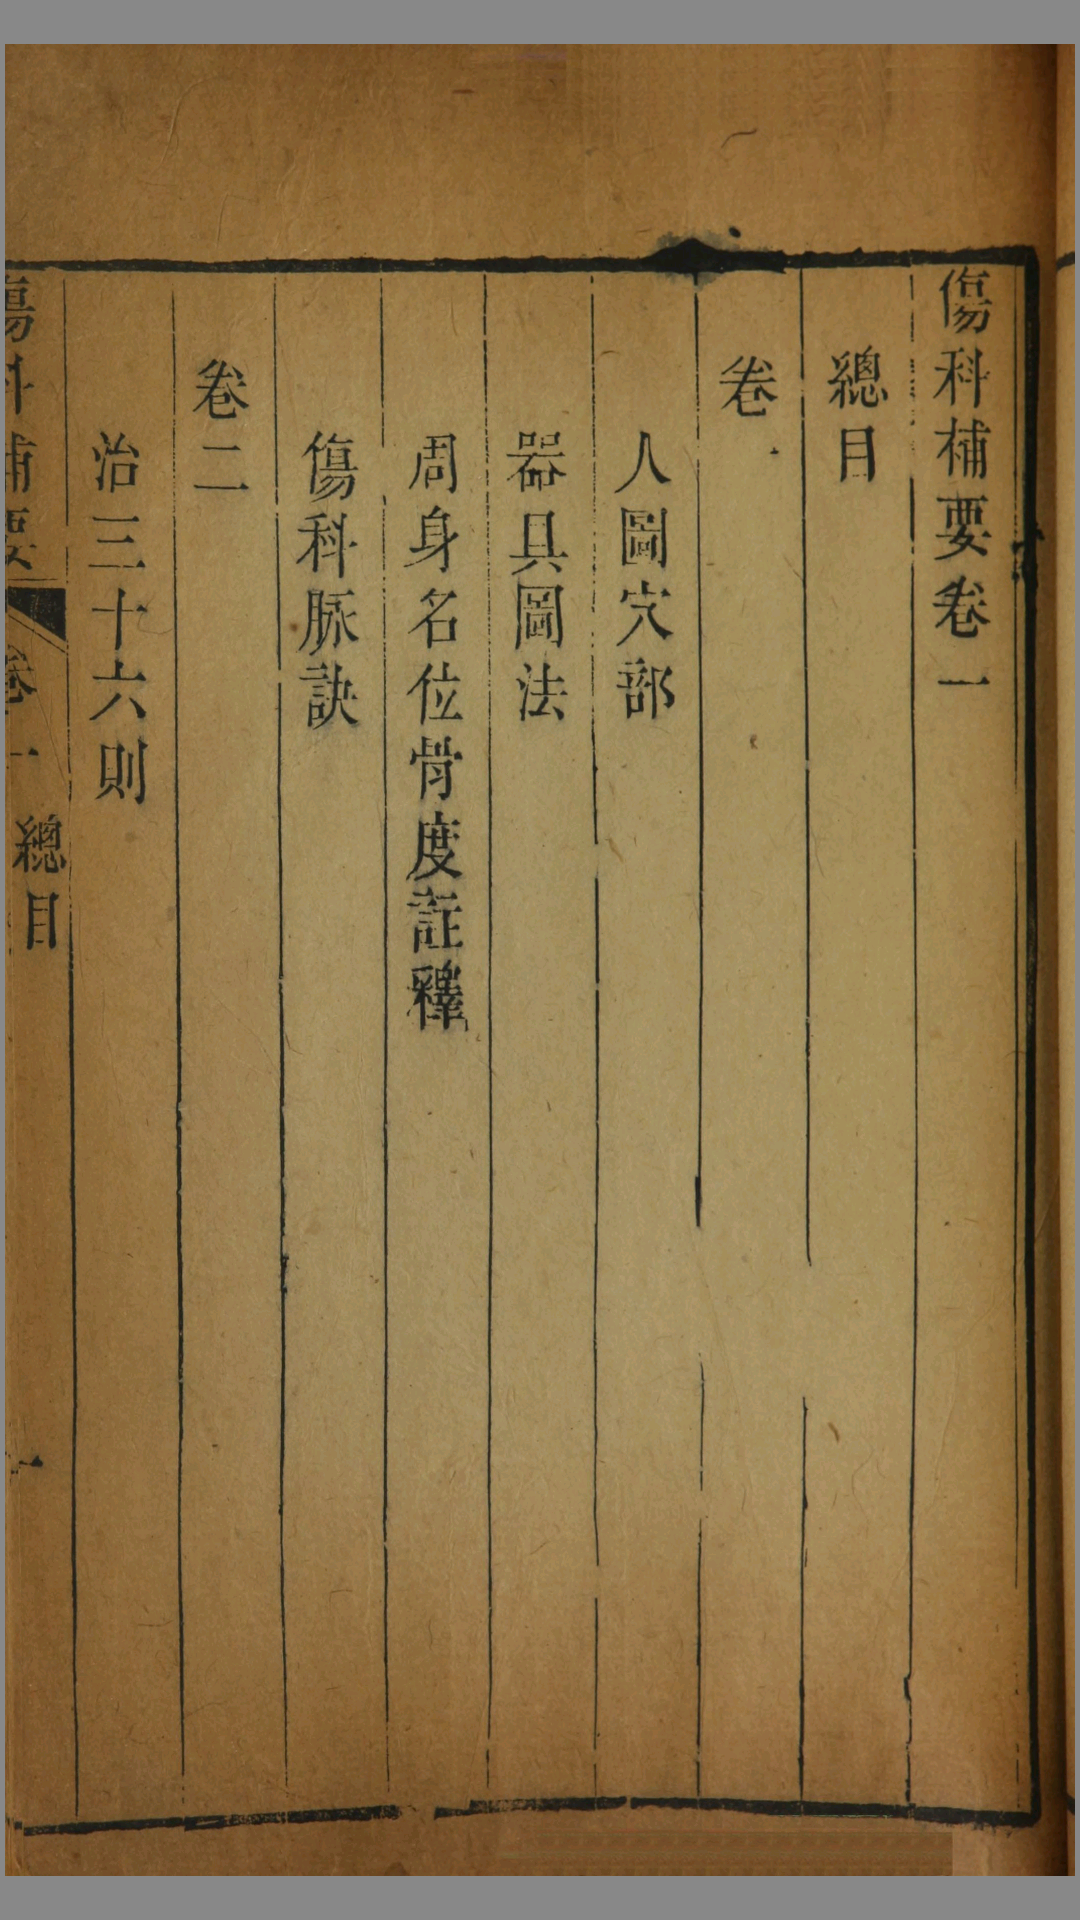 傷科補要卷一
總目
卷
人圖穴部
器具圖法
周身名位骨度註釋
傷科脈訣
卷二
治三十六則
傷科補要 卷一 總目 一